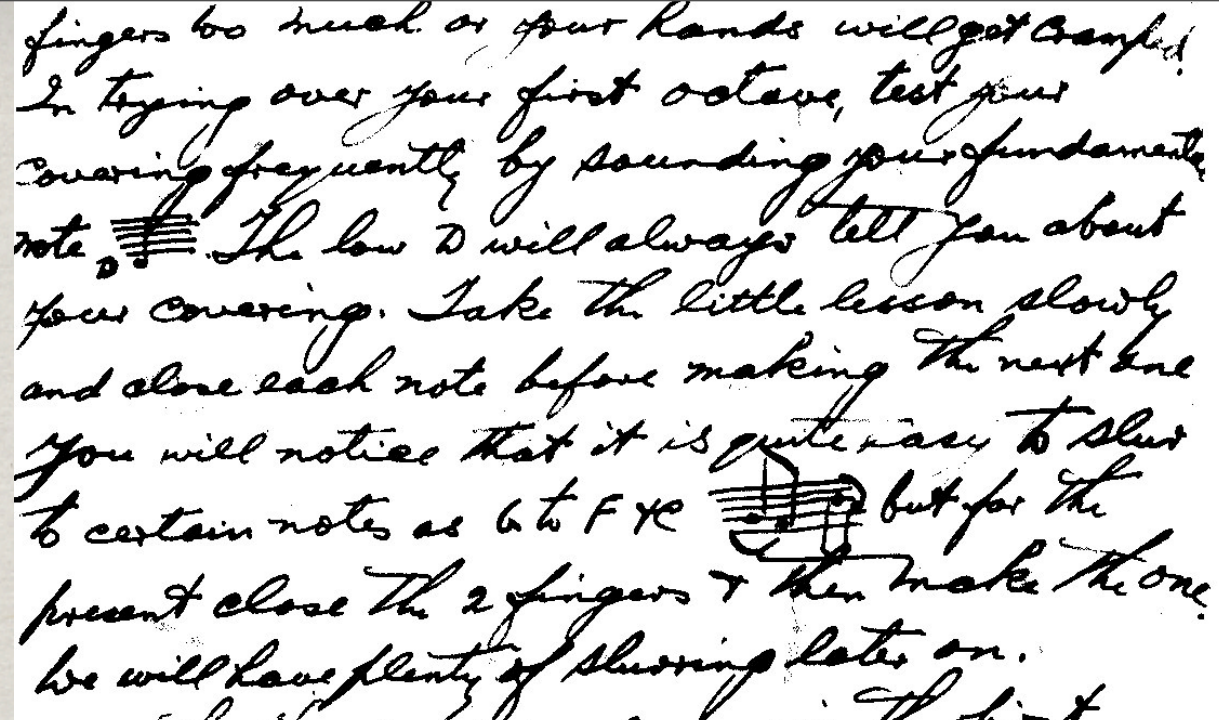 fingers too much or your hands will get cramped.
In trying over your first octave, test your
covering frequently by sounding your fundamental
note D. The low D will always tell you about
your covering. Take the little lesson slowly
and close each note before making the next one
You will notice that it is quite easy to slur
to certain notes as G to F & C but for the
present close the 2 fingers & then make the one.
We will have plenty of slurring later on.